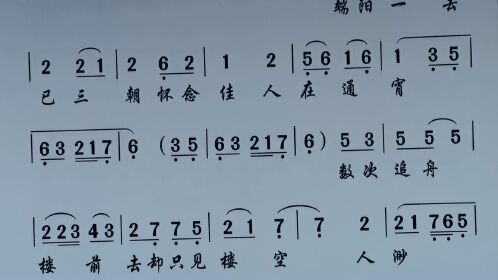 端阳一去
| 2 2 1 | 2 6 2 | 1 2 | 5 6 1 6 | 1 3 5 |
已三朝怀念佳人在通宵
| 6 3 2 1 7 | 6 (3 5 | 6 3 2 1 7 | 6 ) 5 3 | 5 5 5 |
数次追舟
| 2 2 3 4 3 | 2 7 7 5 | 2 1 7 | 7 2 | 2 1 7 6 5 |
楼前去却只见楼空人渺